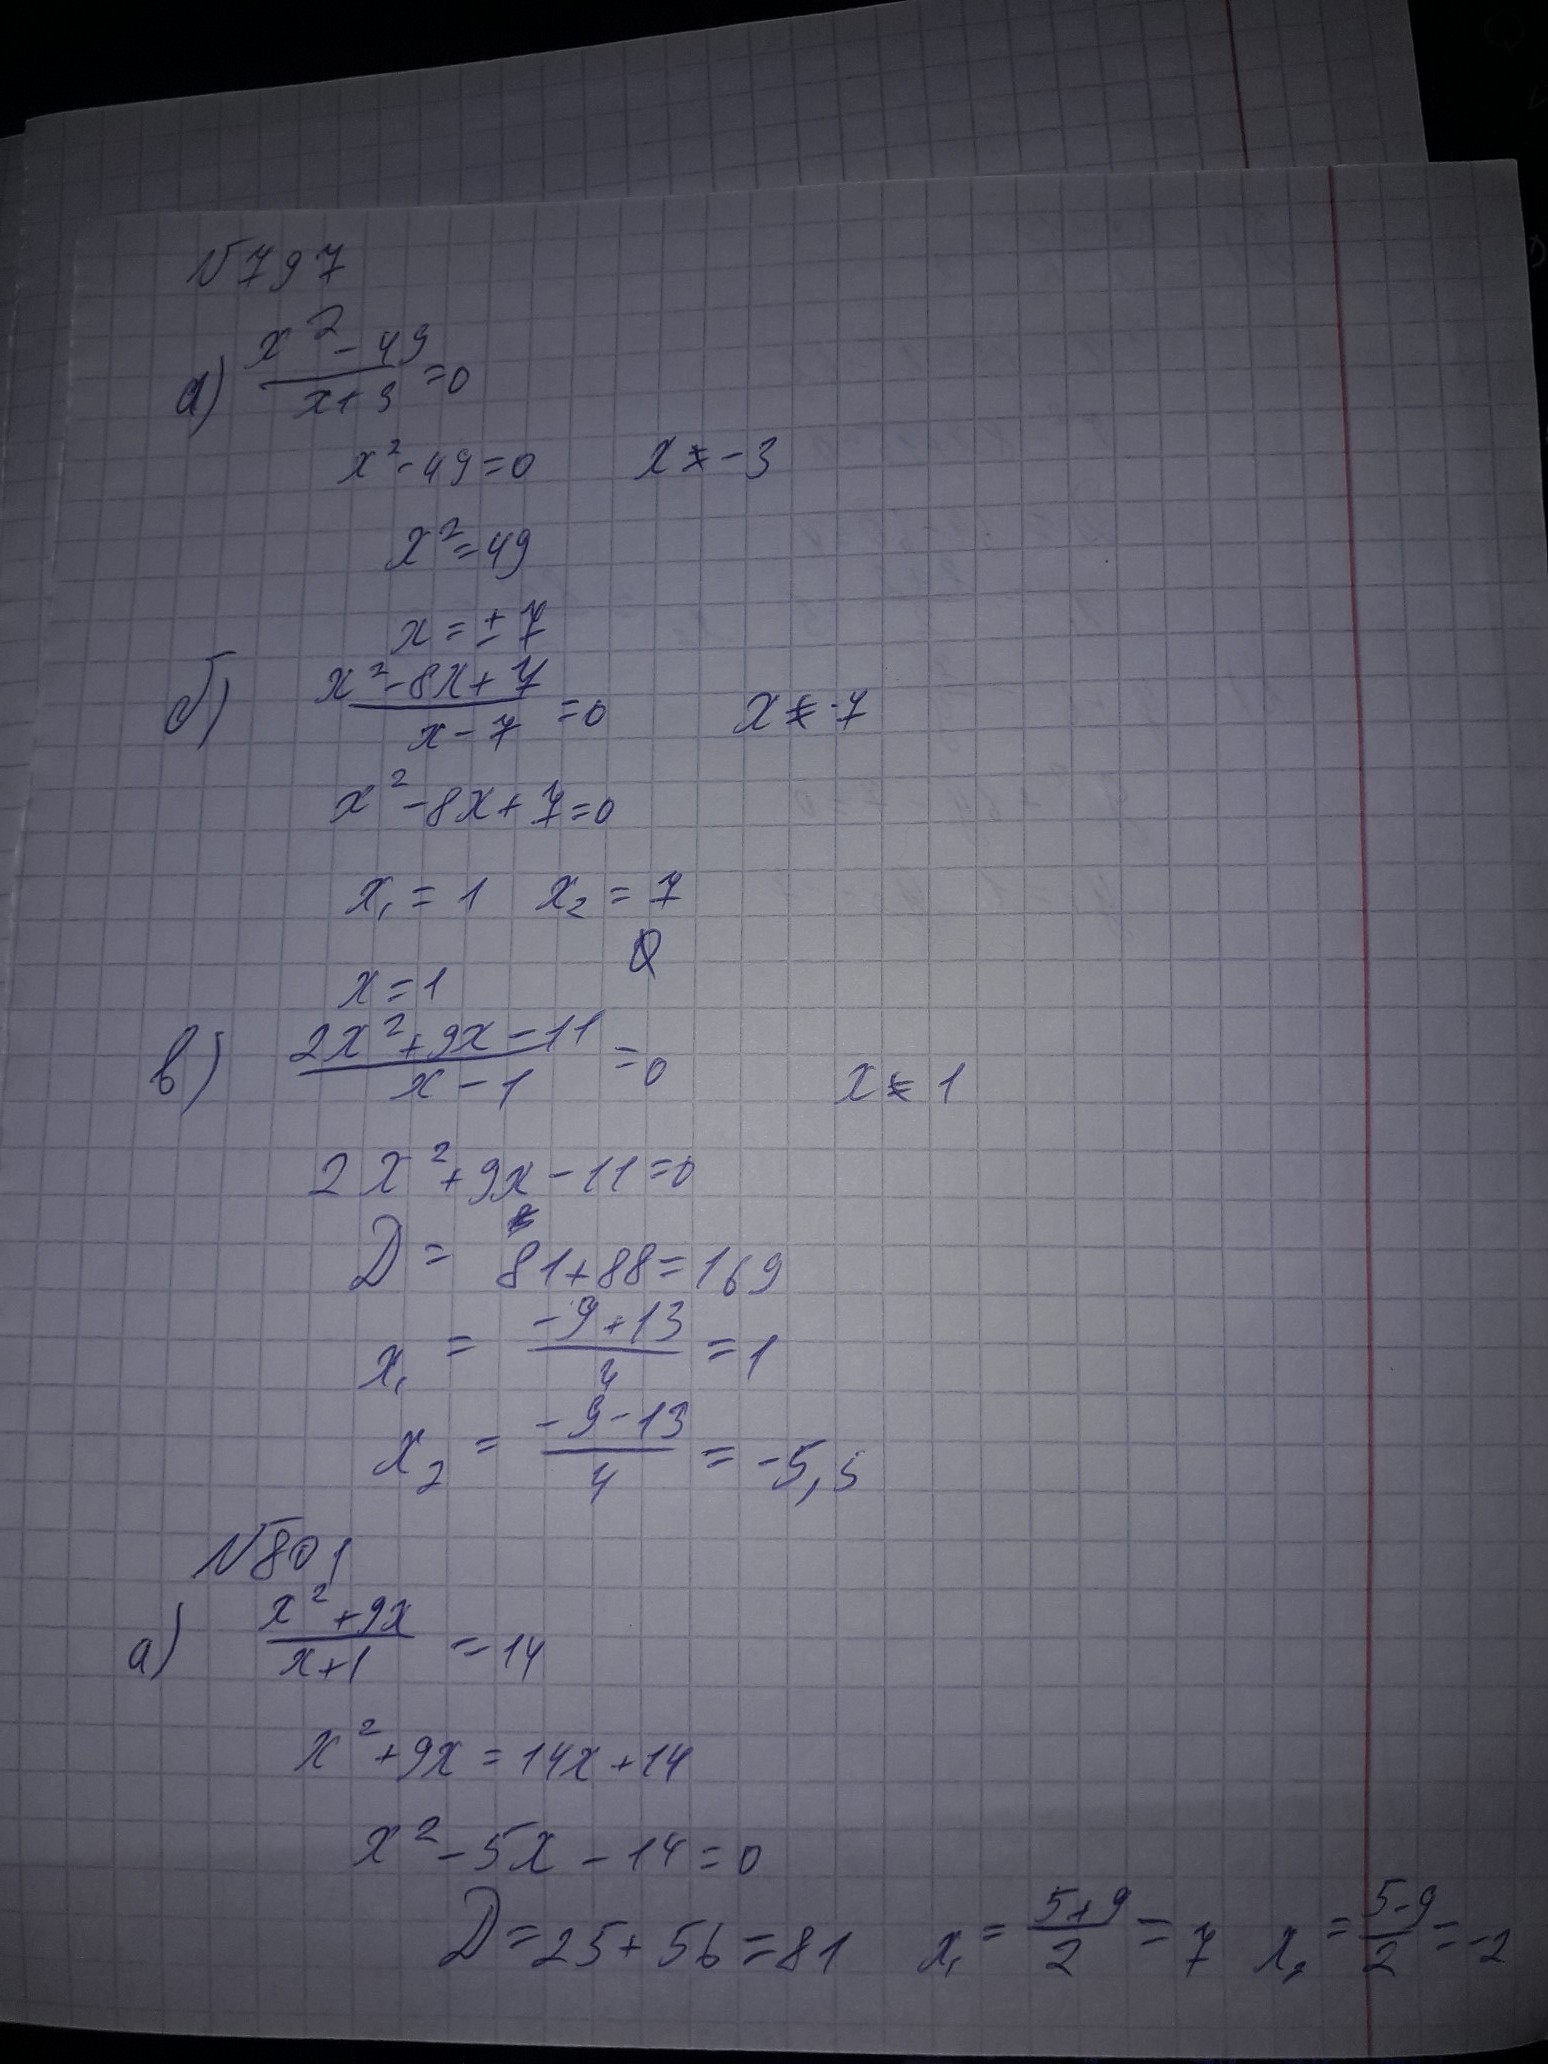 №797
а) (x² - 49)/(x+3) = 0
x² - 49 = 0   x ≠ -3
x² = 49
x = ± 7
б) (x² - 8x + 7)/(x - 7) = 0   x ≠ -7
x² - 8x + 7 = 0
x₁ = 1   x₂ = 7
x = 1
в) (2x² + 9x - 11)/(x - 1) = 0   x ≠ 1
2x² + 9x - 11 = 0
D = 81 + 88 = 169
x₁ = (-9 + 13)/4 = 1
x₂ = (-9 - 13)/4 = -5,5
№801
а) (x² + 9x)/(x+1) = 14
x² + 9x = 14x + 14
x² - 5x - 14 = 0
D = 25 + 56 = 81   x₁ = (5+9)/2 = 7   x₂ = (5-9)/2 = -2